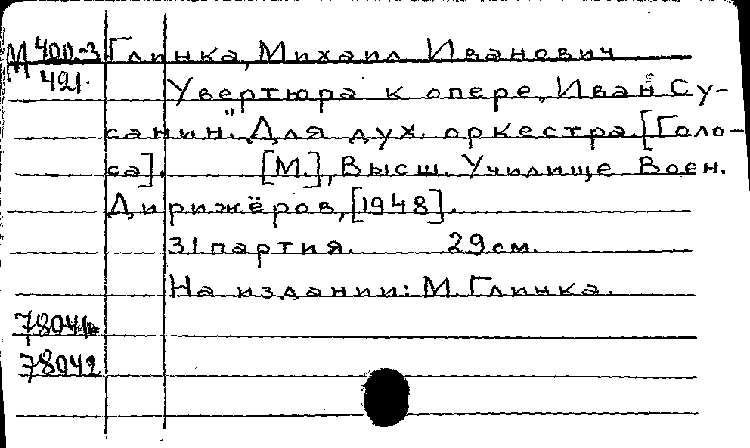 М 400-3 Глинка, Михаил Иванович
421.
Увертюра к опере „Иван Су-
санин". Для дух. оркестра. [Голо-
са]. [М.], Высш. Училище Воен.
Дирижёров, [1948].
31 партия. 29 см.
На издании: М. Глинка.
78042